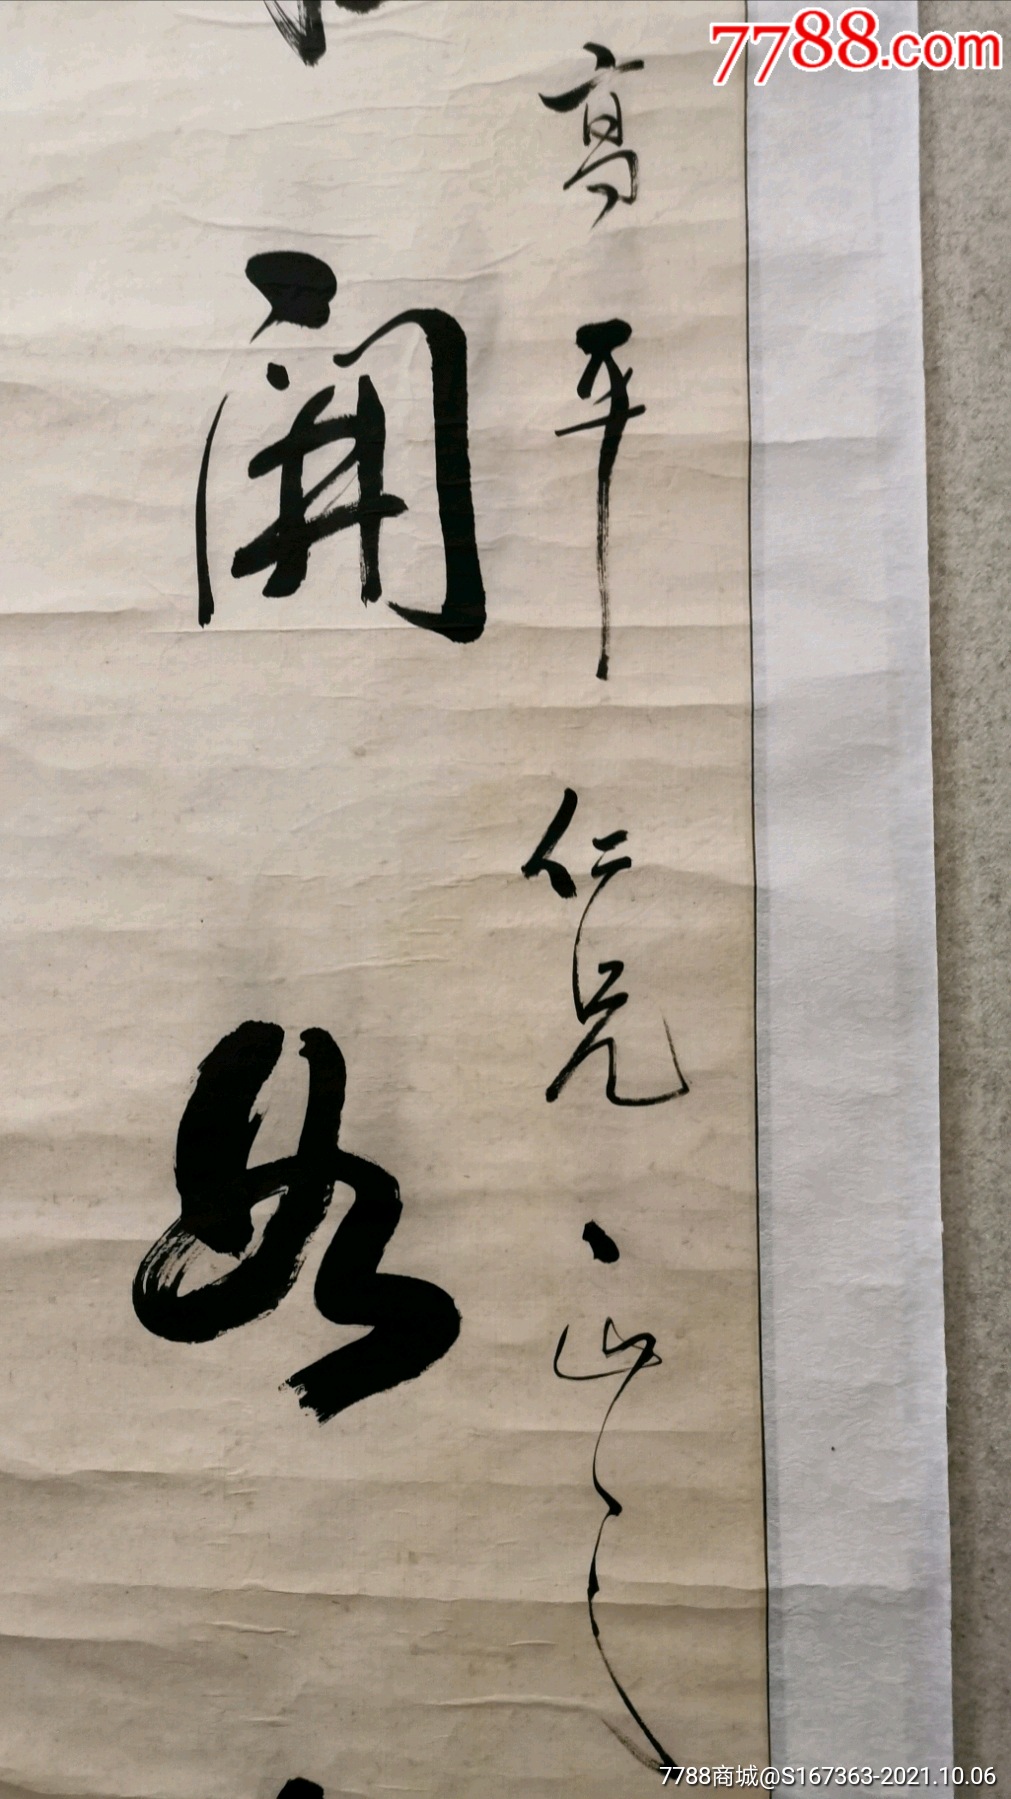 7788.com
高平仁兄正之
開如
7788商城@S167363-2021.10.06